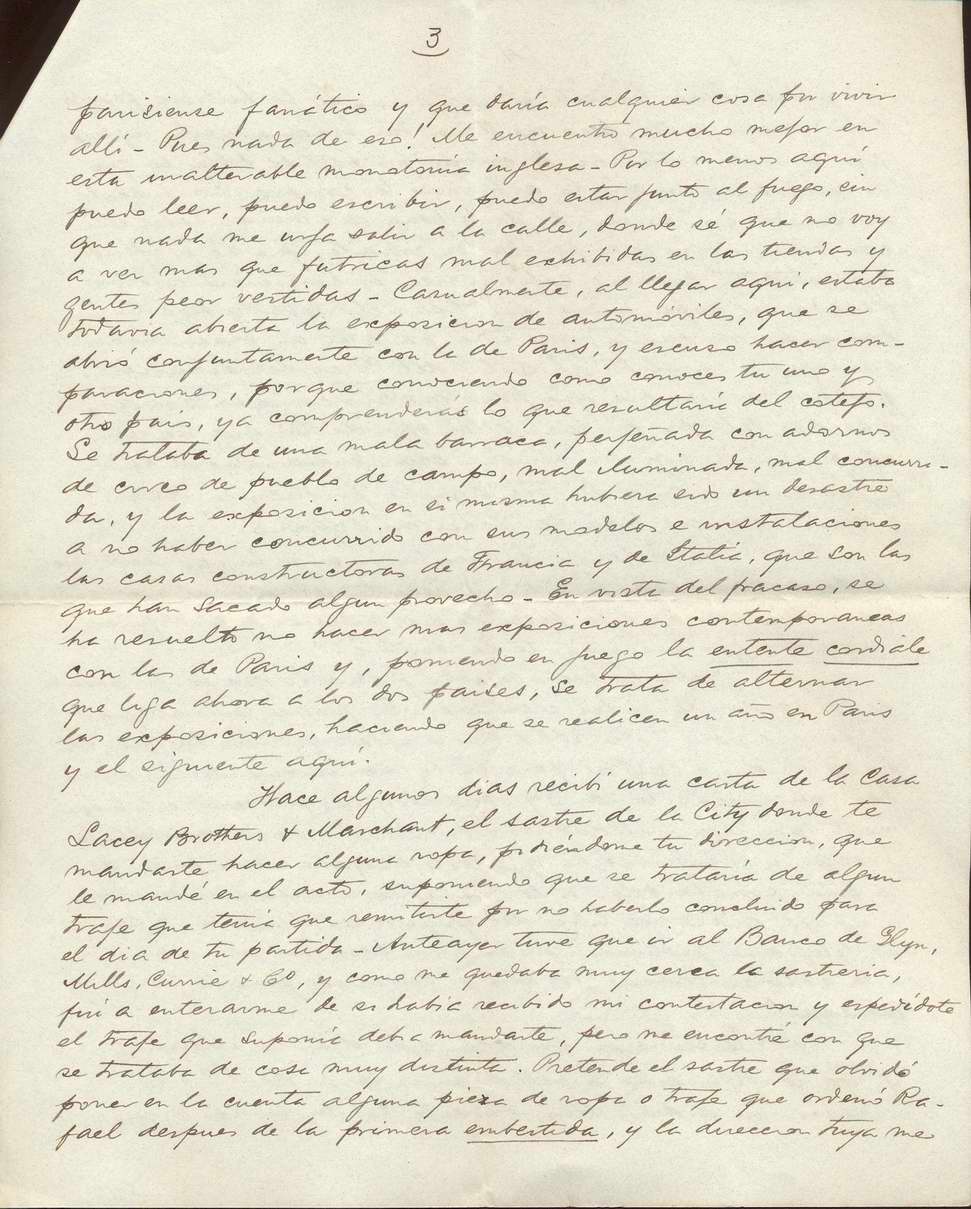 3
parisiense fanático y que daría cualquier cosa por vivir
allí - Pues nada de eso! Me encuentro mucho mejor en
esta inalterable monotonia inglesa - Por lo menos aquí
puedo leer, puedo escribir, puedo estar junto al fuego, sin
que nada me urja salir a la calle, donde sé que no voy
a ver mas que fabricas mal exhibidas en las tiendas y
gentes peor vestidas - Casualmente, al llegar aqui, estaba
todavia abierta la exposicion de automóviles, que se
abrió conjuntamente con la de Paris, y escuso hacer com-
paraciones, porque conociendo como conoces tu uno y
otro pais, ya comprenderás lo que resultaría del cotejo.
Se trataba de una mala barraca, perjeñada con adornos
de circo de pueblo de campo, mal iluminada, mal concurri-
da, y la exposicion en si misma hubiera sido un desastre
a no haber concurrido con sus modelos e instalaciones
las casas constructoras de Francia y de Italia, que son las
que han sacado algun provecho - En vista del fracaso, se
ha resuelto no hacer mas exposiciones contemporaneas
con las de Paris y, poniendo en juego la entente cordiale
que liga ahora a los dos paises, se trata de alternar
las exposiciones, haciendo que se realicen un año en Paris
y el siguiente aquí.
Hace algunos dias recibí una carta de la Casa
Lacey Brothers & Marchant, el sastre de la City donde te
mandaste hacer alguna ropa, pidiéndome tu direccion, que
le mandé en el acto, suponiendo que se trataría de algun
traje que tenia que remitirte por no haberlo concluido para
el dia de tu partida - Anteayer tuve que ir al Banco de Glyn,
Mills, Currie & Co, y como me quedaba muy cerca la sastreria,
fui a enterarme de si habia recibido mi contestacion y espedídote
el traje que suponía debia mandarte, pero me encontré con que
se trataba de cosa muy distinta. Pretende el sastre que olvidó
poner en la cuenta alguna pieza de ropa o traje que ordenó Ra-
fael despues de la primera embestida, y la direccion tuya me